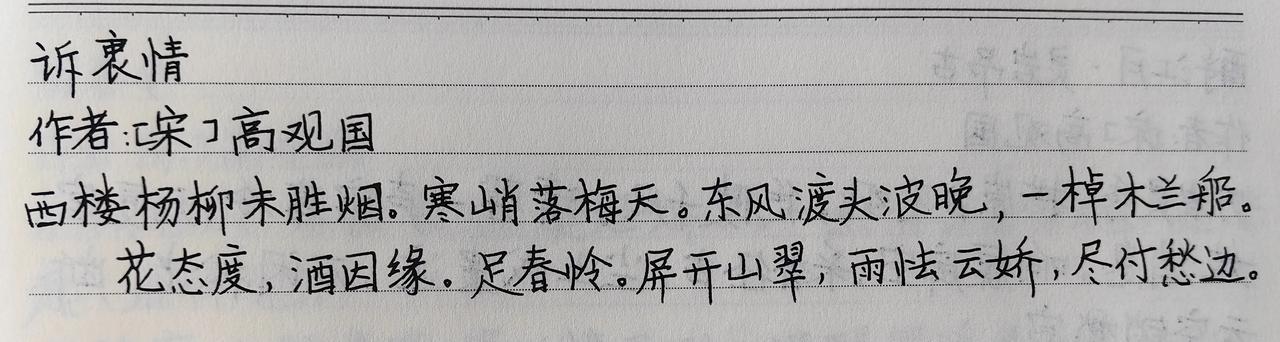 诉衷情
作者:[宋]高观国
西楼杨柳未胜烟。寒峭落梅天。东风渡头波晚,一棹木兰船。
花态度,酒因缘。足春怜。屏开山翠,雨怯云娇,尽付愁边。